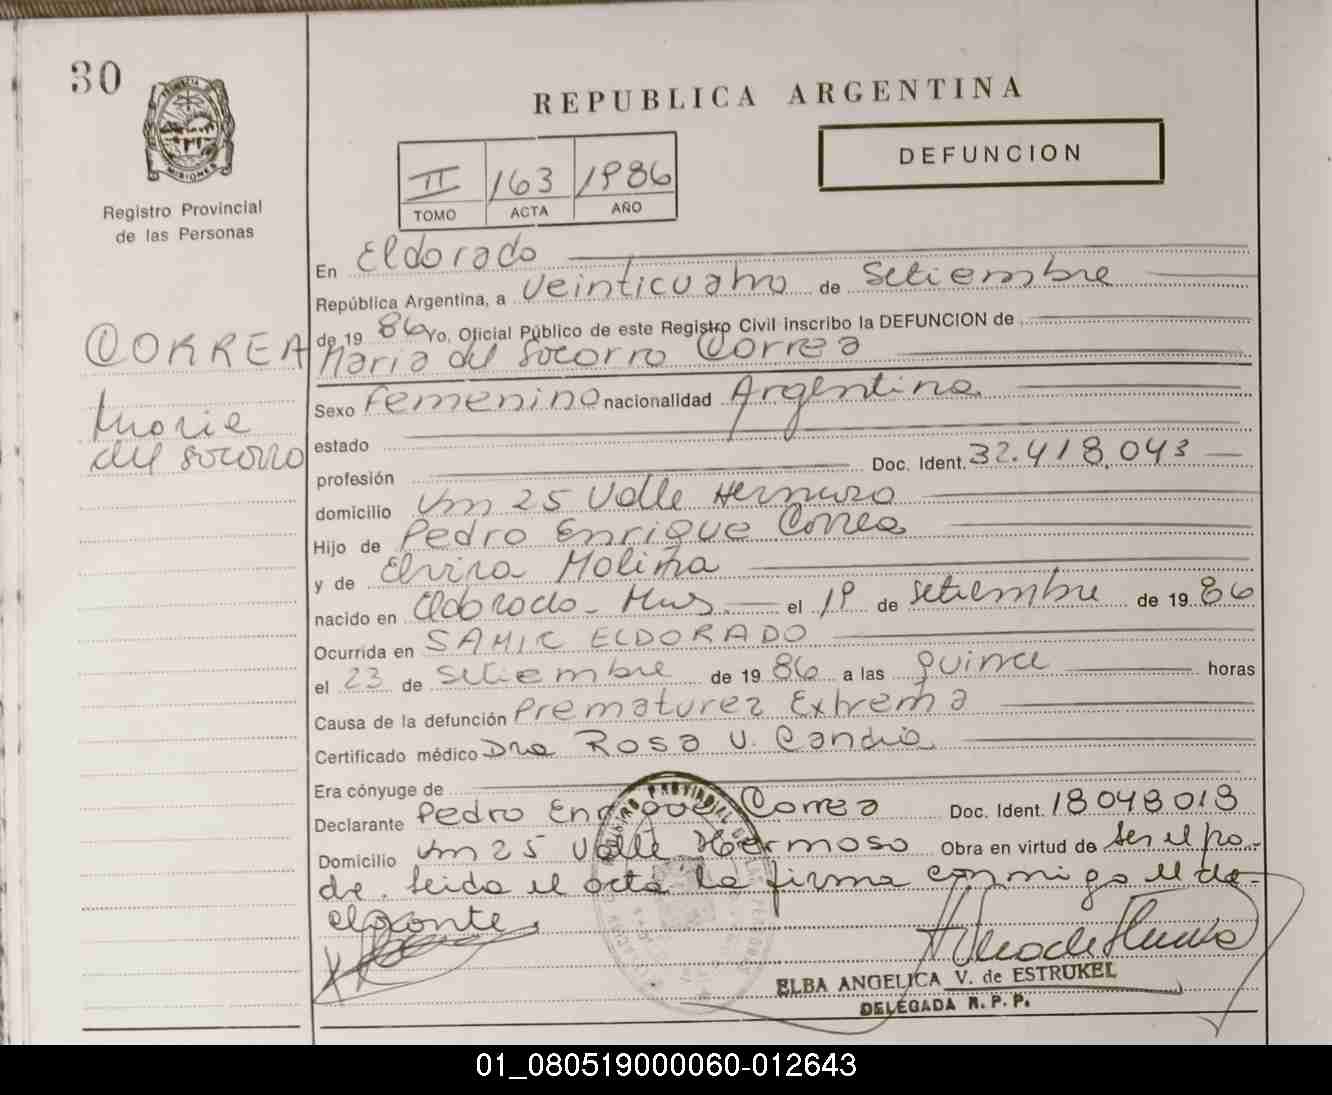 30
PROVINCIA DE
MISIONES
Registro Provincial
de las Personas
REPUBLICA ARGENTINA
II 163 1986
TOMO ACTA AÑO
DEFUNCION
CORREA
Maria
del socorro
En Eldorado
República Argentina, a veinticuatro de Setiembre
de 19 86 Yo, Oficial Público de este Registro Civil inscribo la DEFUNCION de
Maria del Socorro Correa
Sexo Femenino nacionalidad Argentina
estado
profesión Doc. Ident. 32.418.043
domicilio Km 25 Valle Hermoso
Hijo de Pedro Enrique Correa
y de Elvira Molina
nacido en Eldorado - Mnes el 19 de setiembre de 19 86
Ocurrida en SAMIC ELDORADO
el 23 de Setiembre de 19 86 a las quince horas
Causa de la defunción Prematurez Extrema
Certificado médico Dra Rosa V. Candia
Era cónyuge de
Declarante Pedro Enrique Correa Doc. Ident. 18048018
Domicilio Km 25 Valle Hermoso Obra en virtud de ser el pa-
dre. Leida el acta la firma conmigo el de-
clarante.
ELBA ANGELICA V. de ESTRUKEL
DELEGADA R. P. P.
01_080519000060-012643